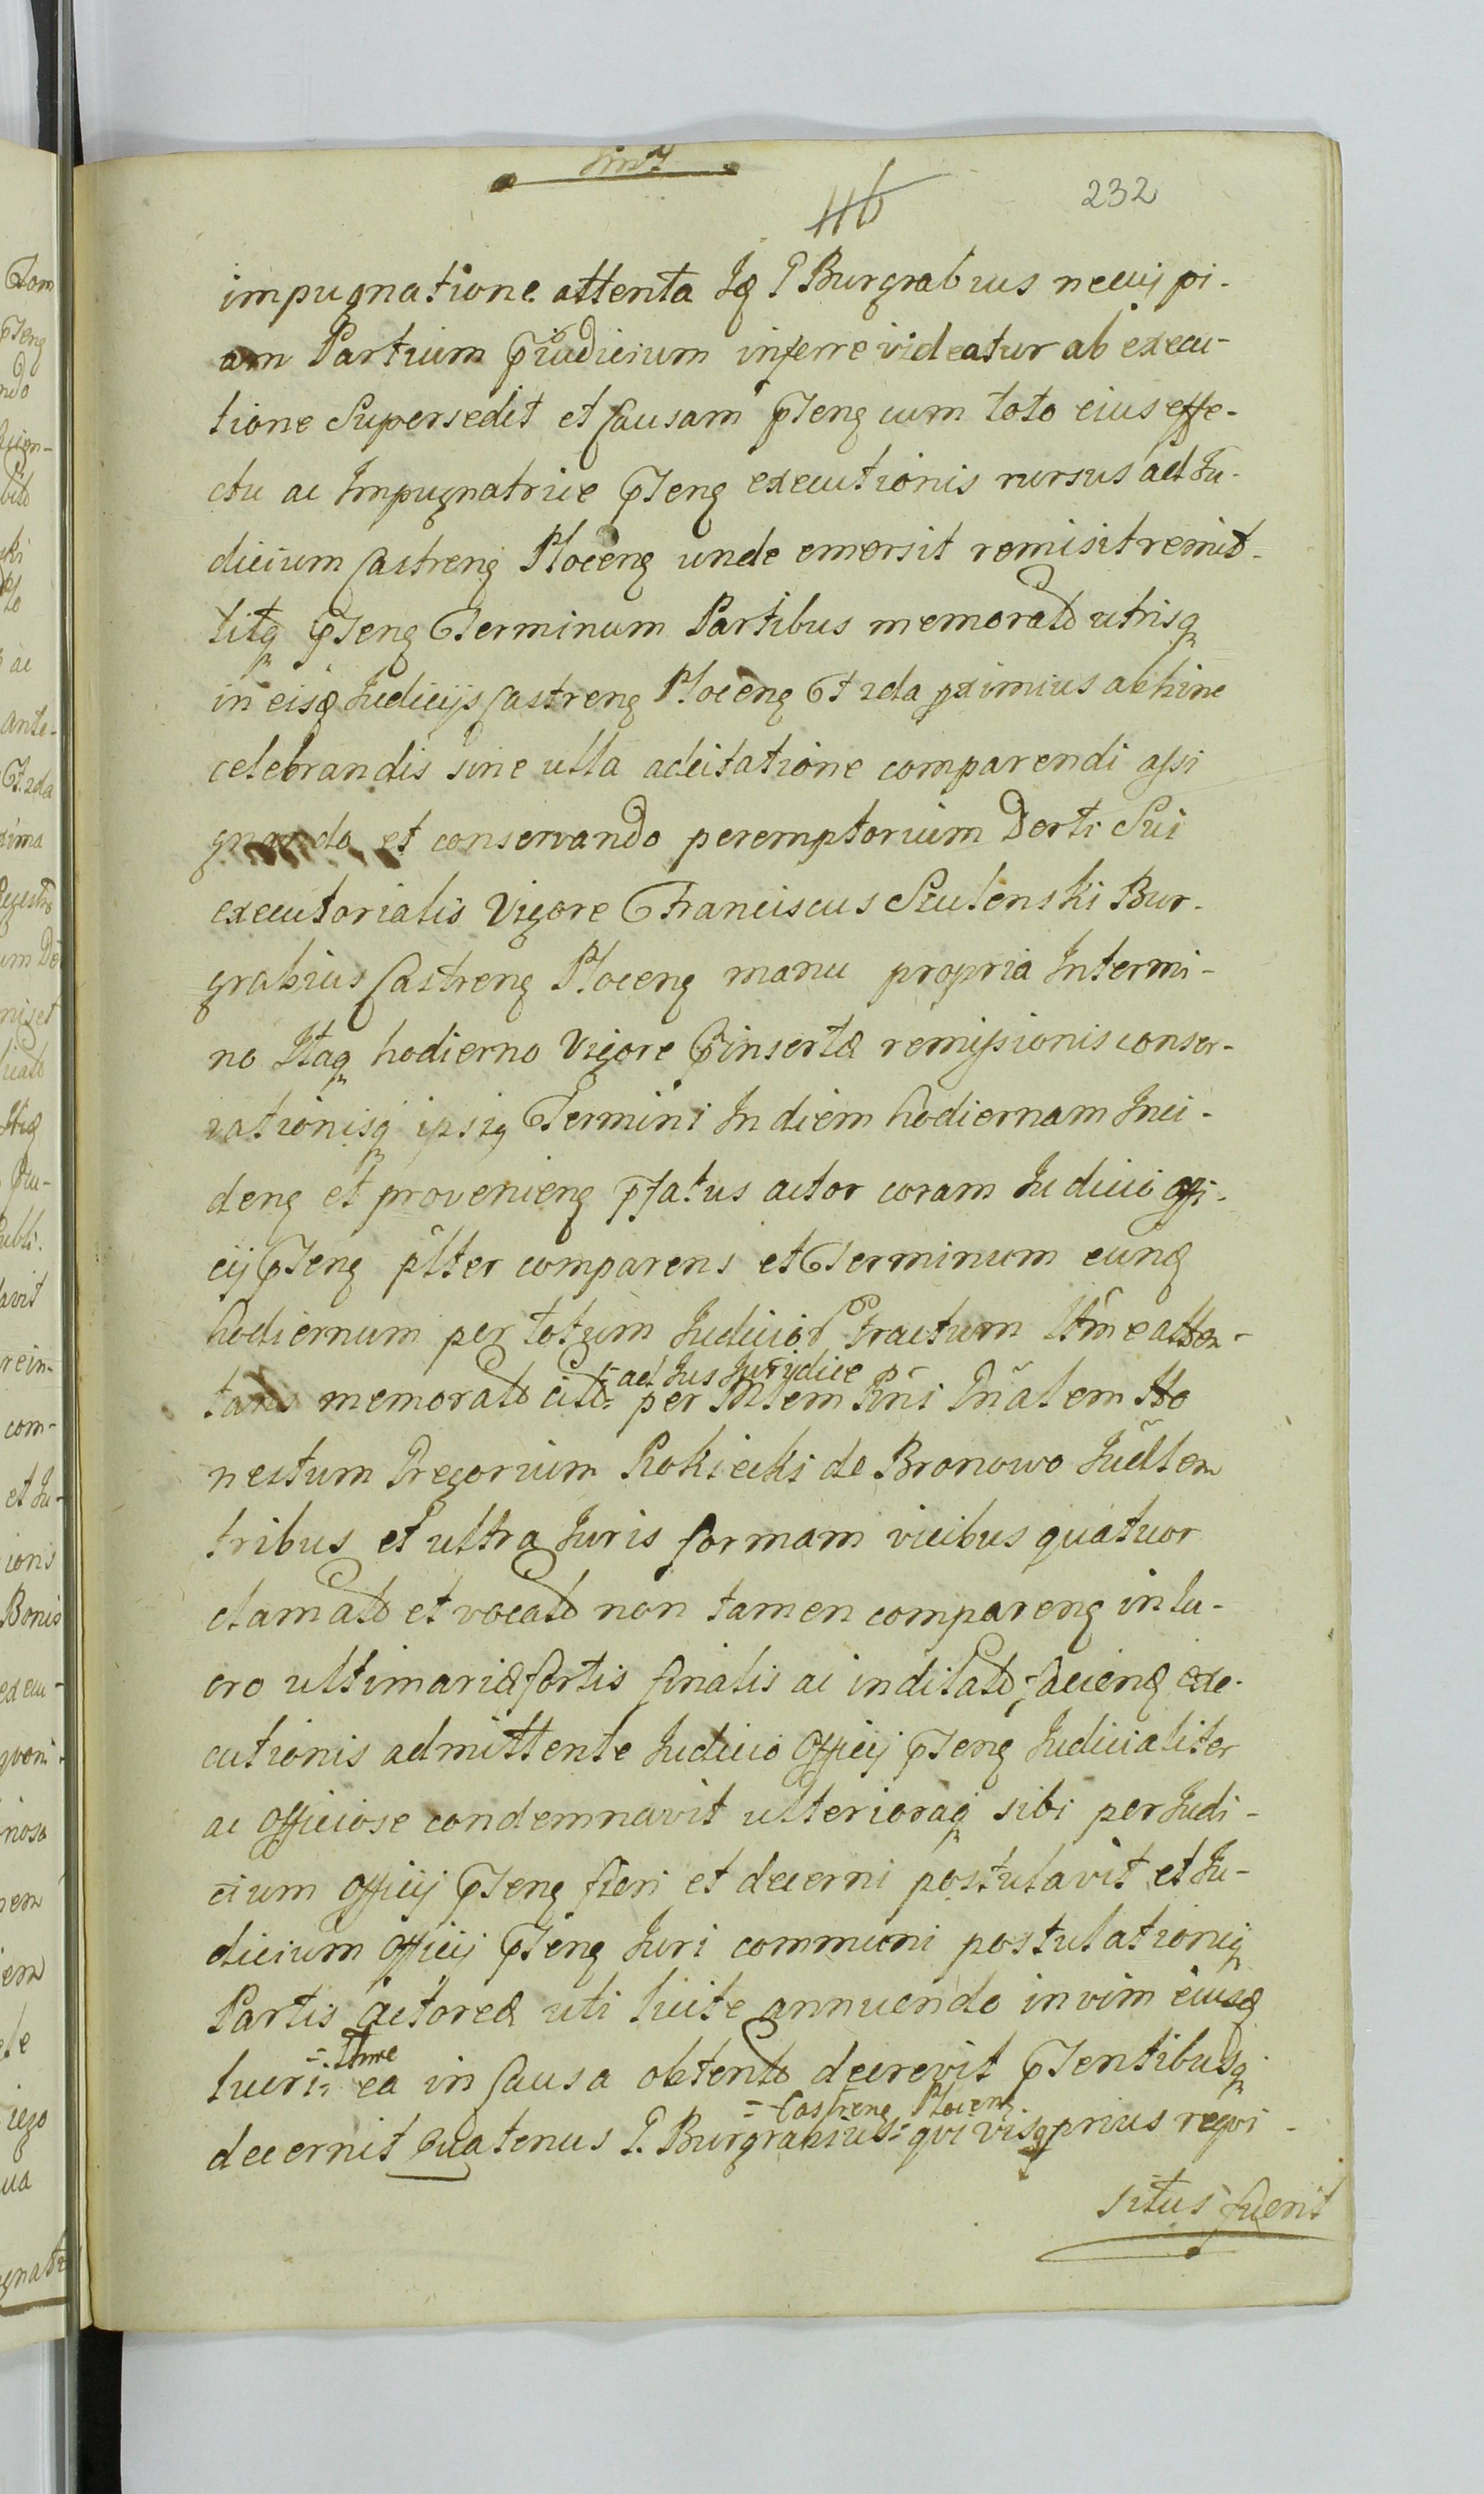 116
232
impugnatione attenta Iq P Burgrabius necuj pi-
am Partium pｒiudicium inferre videatur ab execu-
tione Supersedit et Causam pｒteng cum toto eius effe-
ctu ac Impugnatrice pｒteng executionis rursus ad Ju-
dicium Castreng Ploceng unde emersit remisit remit-
titq pｒteng Terminum Partibus memorato utrisq
in eisq Judicijs Castreng Ploceng Frida pximius ac hinc
celebrandis sine ulla adcitatione comparendi assi
gnando et conservando peremptorium Dcrti Sui
executorialis Vigore Franciscus Sculenski Bur-
grabius Castreng Ploceng manu propria Intermi-
no Itaq hodierno Vigore pinsertæ remissionis conser-
vationisq ipsiq Termini In diem hodiernam Inci-
deng et provenieng pfatus actor coram Judicio offi-
cij pｒteng plter comparens et Terminum eunq
hodiernum per totum Judicior Tractum Itme atten-
tans memorato cito = ad Jus Juridice
per Mlem Rni Pnalem Ho
nestum Gregorium Rokicki de Bronowo Judlem
tribus et ultra Juris formam vicibus quatuor
clamato et vocato non tamen compareng in lu-
cro ultimariæ sortis finalis ac inditato facienq exe-
cutionis admittente Judicio Officij pｒteng Judicialiter
ac officiose condemnavit ulterioraq sibi per Judi-
cium officij pｒteng fieri et decerni postulavit et Ju-
dicium officij pｒteng Juri communi postulationiq
Partis actoreæ uti licite annuendo in vim eiusq
lucri = Itme ea in Causa obtento decrevit pｒtentibusq
decernit Quatenus P. Burgrabius = Castreng Ploceng qvi visq prius reqvi-
situs fuerit